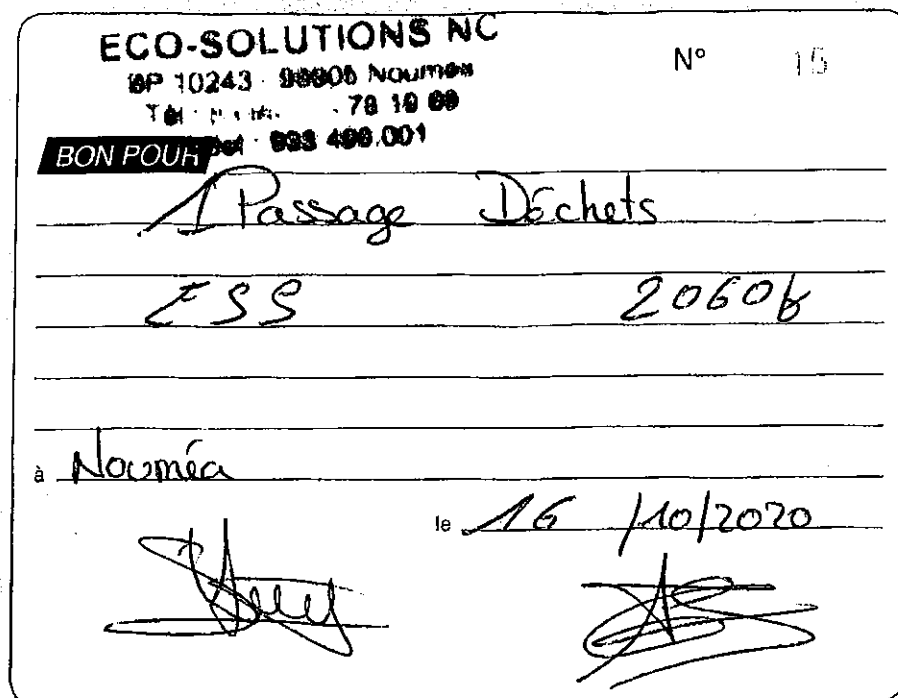 ECO-SOLUTIONS NC
N° 15
BP 10243 - 98805 Nouméa
Tél 78 19 69
933 496.001
BON POUR
1 Passage Déchets
ESS 2060f
à Nouméa
le 16/10/2020